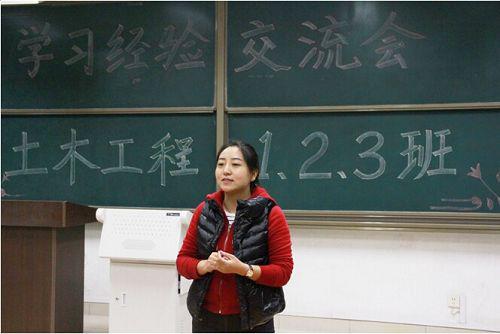 学习经验 交流会
土木工程 1、2、3班